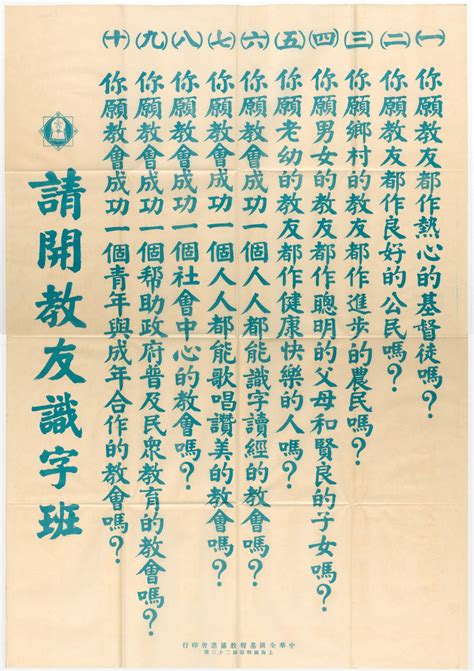 (一) 你願教友都作熱心的基督徒嗎？
(二) 你願教友都作良好的公民嗎？
(三) 你願鄉村的教友都作進步的農民嗎？
(四) 你願男女的教友都作聰明的父母和賢良的子女嗎？
(五) 你願老幼的教友都作健康快樂的人嗎？
(六) 你願教會成功一個人人都能識字讀經的教會嗎？
(七) 你願教會成功一個人人都能歌唱讚美的教會嗎？
(八) 你願教會成功一個社會中心的教會嗎？
(九) 你願教會成功一個帮助政府普及民眾教育的教會嗎？
(十) 你願教會成功一個青年與成年合作的教會嗎？
請開教友識字班
中華全國基督教協進會印行
上海圓明園路二十三號